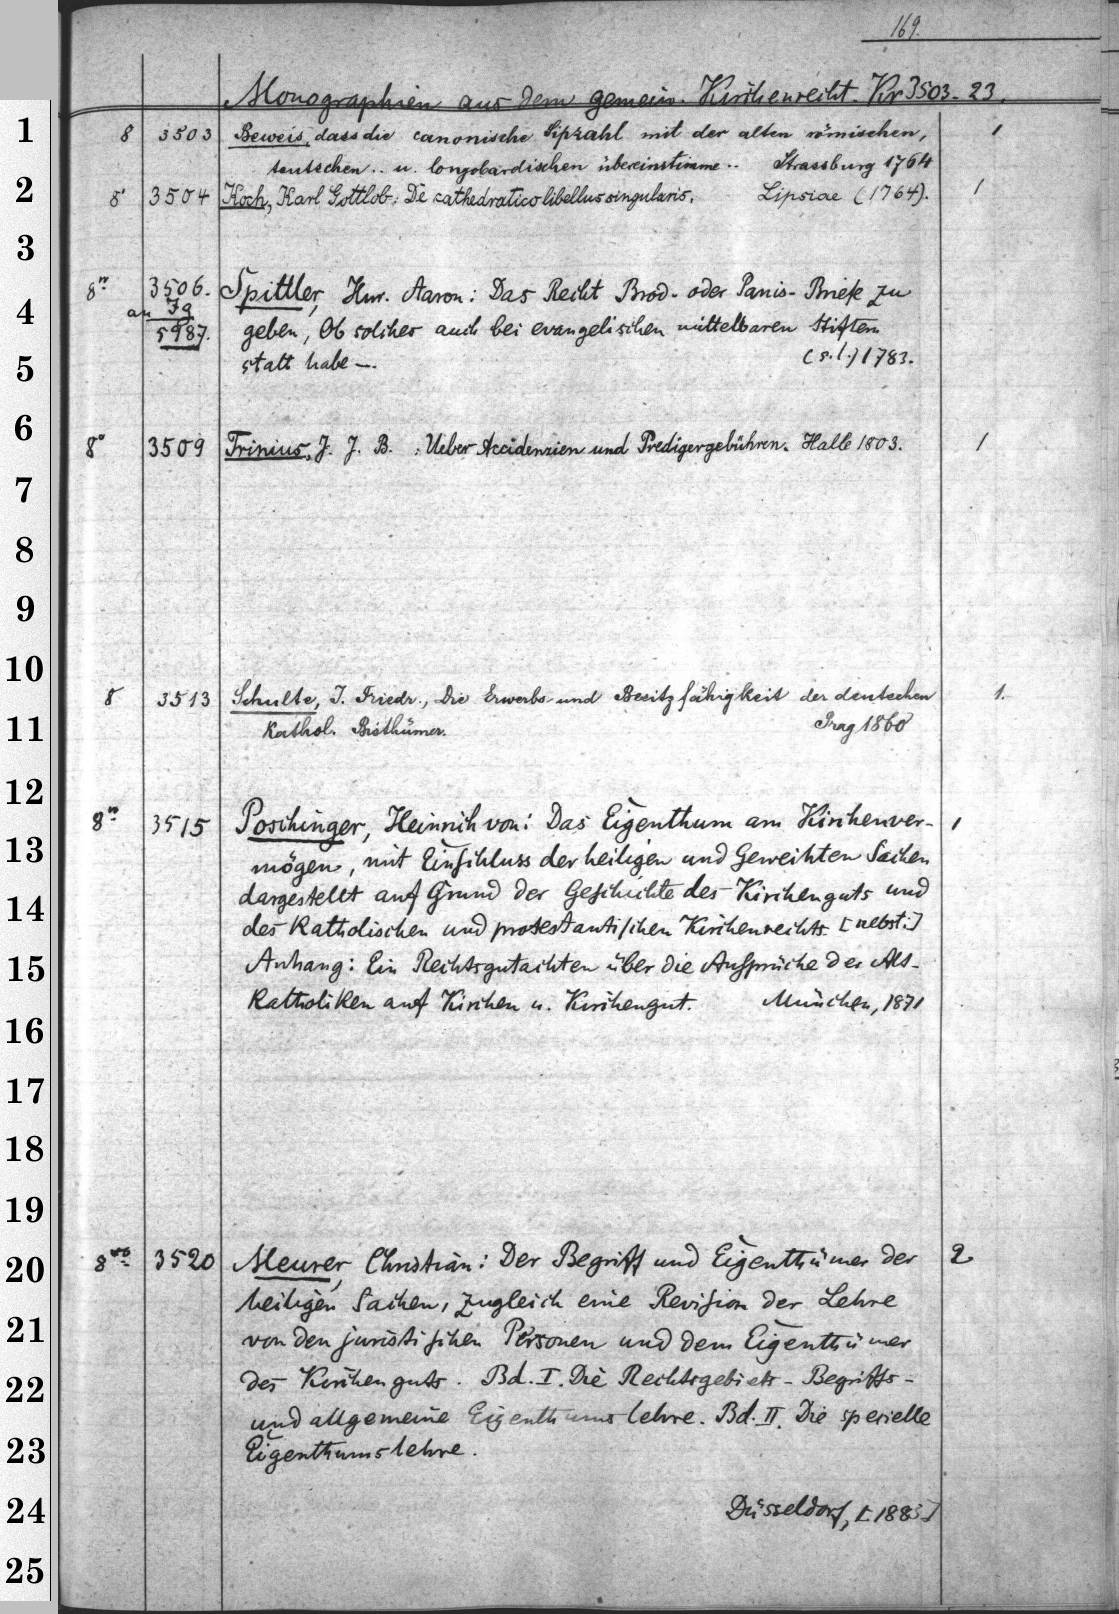 169.
Monographien aus dem gemein. Kirchenrecht. Kr 3503-23.
1
8 3503 Beweis, dass die canonische Sipzahl mit der alten römischen, 1
teutschen .. u. longobardischen übereinstimme .. Strassburg 1764
2
8° 3504 Koch, Karl Gottlob: De cathedratico libellus singularis. Lipsiae (1764). 1
3
8° 3506. Spittler, Hnr. Aaron: Das Recht Brod- oder Panis-Briefe zu
4
an Jg
5987. geben, Ob solches auch bei evangelischen mittelbaren Stiftern
5
statt habe —. (s.l.) 1783.
6
8° 3509 Trinius, J. J. B. : Ueber Accidenzien und Predigergebühren. Halle 1803. 1
7
8
9
10
8 3513 Schulte, J. Friedr., Die Erwerbs- und Besitzfähigkeit der deutschen 1.
11
kathol. Bisthümer. Prag 1860
12
8° 3515 Poschinger, Heinrich von: Das Eigenthum am Kirchenver- 1
13
mögen, mit Einschluss der heiligen und geweihten Sachen
dargestellt auf Grund der Geschichte des Kirchenguts und
14
des Katholischen und protestantischen Kirchenrechts [nebst:]
15
Anhang: Ein Rechtsgutachten über die Ansprüche der Alt-
Katholiken auf Kirchen u. Kirchengut. München, 1871
16
17
18
19
8vo 3520 Meurer, Christian: Der Begriff und Eigenthümer der 2
20
heiligen Sachen, zugleich eine Revision der Lehre
21
von den juristischen Personen und dem Eigenthümer
22
des Kirchenguts. Bd. I. Die Rechtsgebiets-Begriffs-
und allgemeine Eigenthumslehre. Bd. II. Die specielle
23
Eigenthumslehre.
24
Düsseldorf, [1885]
25